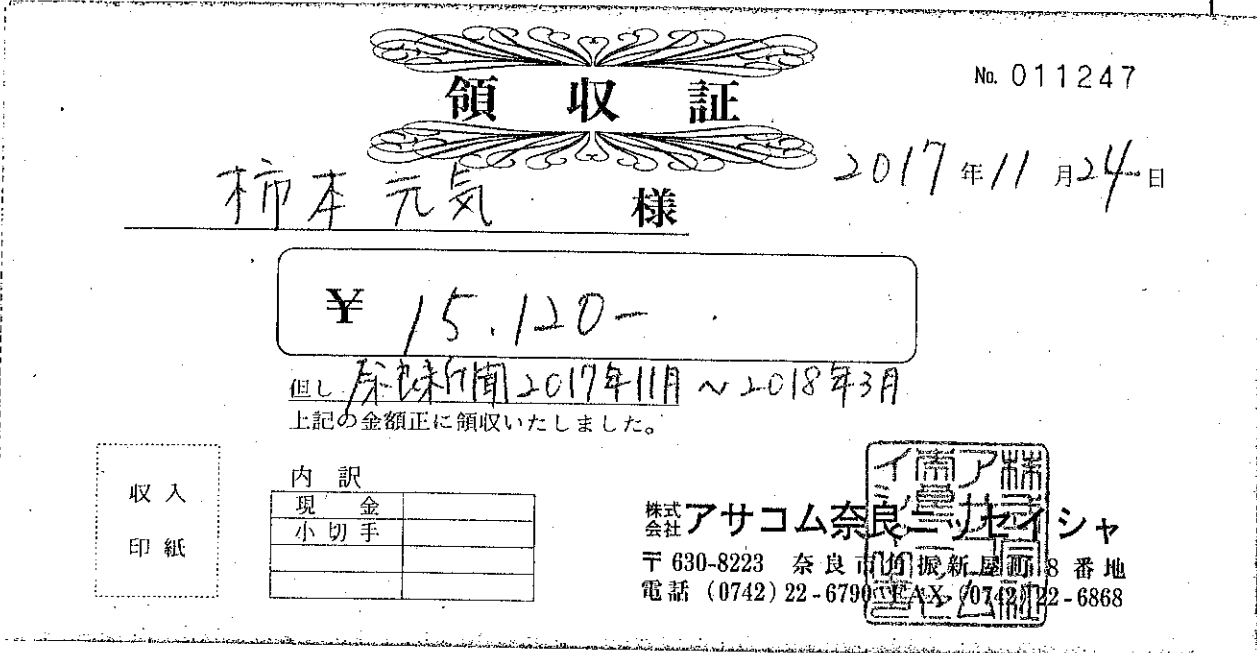 領収証
No. 011247
2017年11月24日
柿本元気 様
¥ 15.120-
但し 奈良新聞 2017年11月 ~ 2018年3月
上記の金額正に領収いたしました。
収入
印紙
内訳
現金
小切手
株式会社 アサコム奈良ニッセイシャ
〒630-8223 奈良市角振新屋町8番地
電話 (0742) 22-6790 FAX (0742) 22-6868